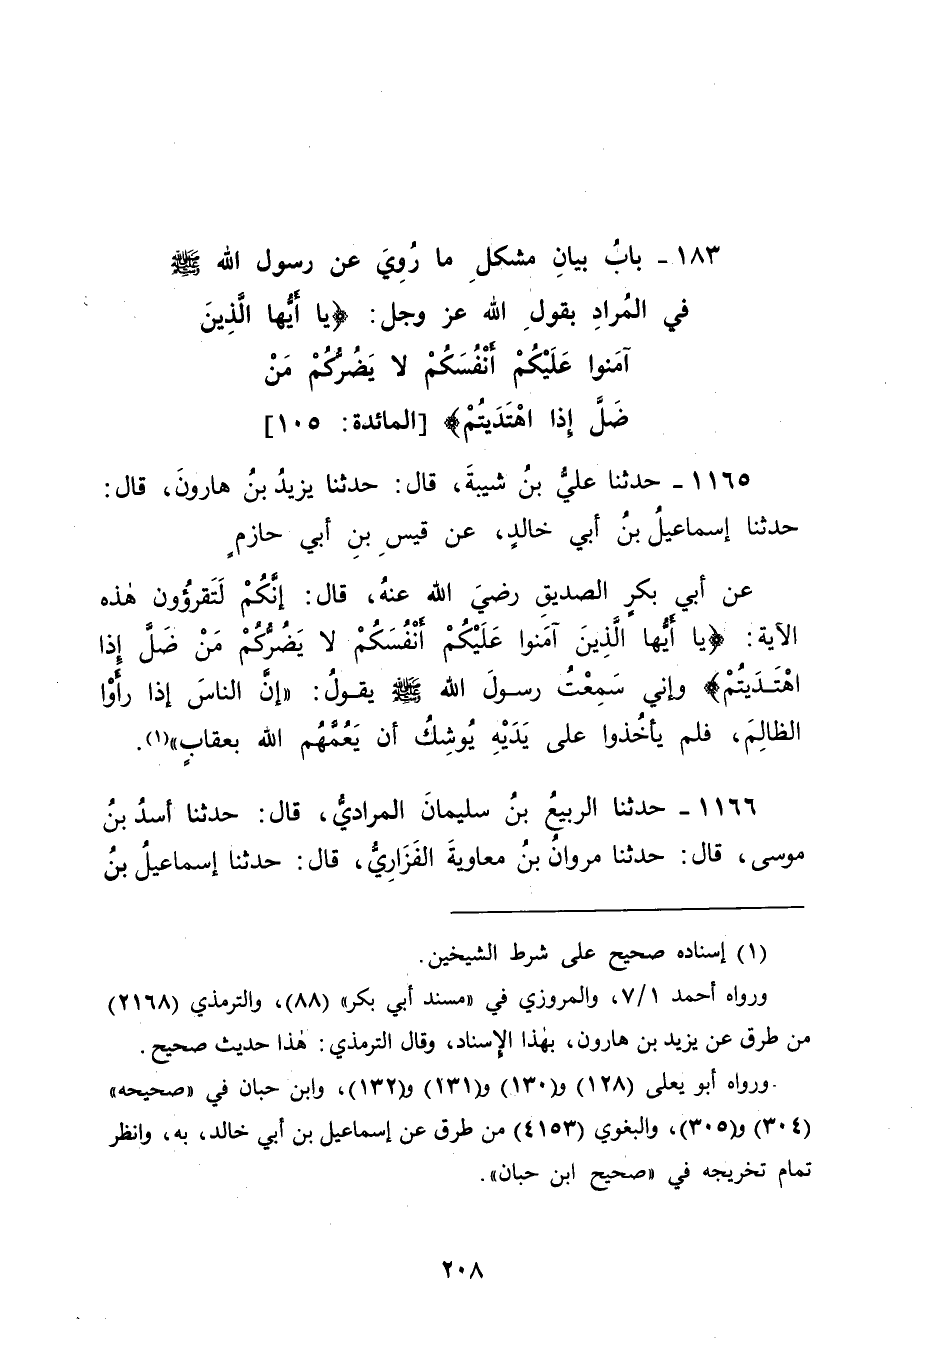 ١٨٣ ـ بابُ بيانِ مشكلِ ما رُوِيَ عن رسول الله ﷺ
في المُرادِ بقولِ الله عز وجل: ﴿يا أَيُّها الَّذِينَ
آمَنوا عَلَيْكُمْ أَنْفُسَكُمْ لا يَضُرُّكُمْ مَنْ
ضَلَّ إِذا اهْتَدَيتُمْ﴾ [المائدة: ١٠٥]
١١٦٥ ـ حدثنا عليُّ بنُ شيبةَ، قال: حدثنا يزيدُ بنُ هارونَ، قال:
حدثنا إسماعيلُ بنُ أبي خالدٍ، عن قيسِ بنِ أبي حازمٍ
عن أبي بكرٍ الصديقِ رضيَ الله عنهُ، قال: إِنَّكُمْ لَتَقرؤُون هٰذه
الآية: ﴿يا أَيُّها الَّذِينَ آمَنوا عَلَيْكُمْ أَنْفُسَكُمْ لا يَضُرُّكُمْ مَنْ ضَلَّ إِذا
اهْتَـدَيتُمْ﴾ وإني سَمِعْتُ رسـولَ الله ﷺ يقـولُ: «إنَّ الناسَ إذا رأَوْا
الظالِمَ، فلم يأخُذوا على يَدَيْهِ يُوشِكُ أن يَعُمَّهُم الله بعقابٍ»(١).
١١٦٦ ـ حدثنا الربيعُ بنُ سليمانَ المراديُّ، قال: حدثنا أسدُ بنُ
موسى، قال: حدثنا مروانُ بنُ معاويةَ الفَزَارِيُّ، قال: حدثنا إسماعيلُ بنُ
(١) إسناده صحيح على شرط الشيخين.
ورواه أحمد ٧/١، والمروزي في «مسند أبي بكر» (٨٨)، والترمذي (٢١٦٨)
من طرق عن يزيد بن هارون، بهٰذا الإِسناد، وقال الترمذي: هٰذا حديث صحيح.
ورواه أبو يعلى (١٢٨) و(١٣٠) و(١٣١) و(١٣٢)، وابن حبان في «صحيحه»
(٣٠٤) و(٣٠٥)، والبغوي (٤١٥٣) من طرق عن إسماعيل بن أبي خالد، به، وانظر
تمام تخريجه في «صحيح ابن حبان».
٢٠٨